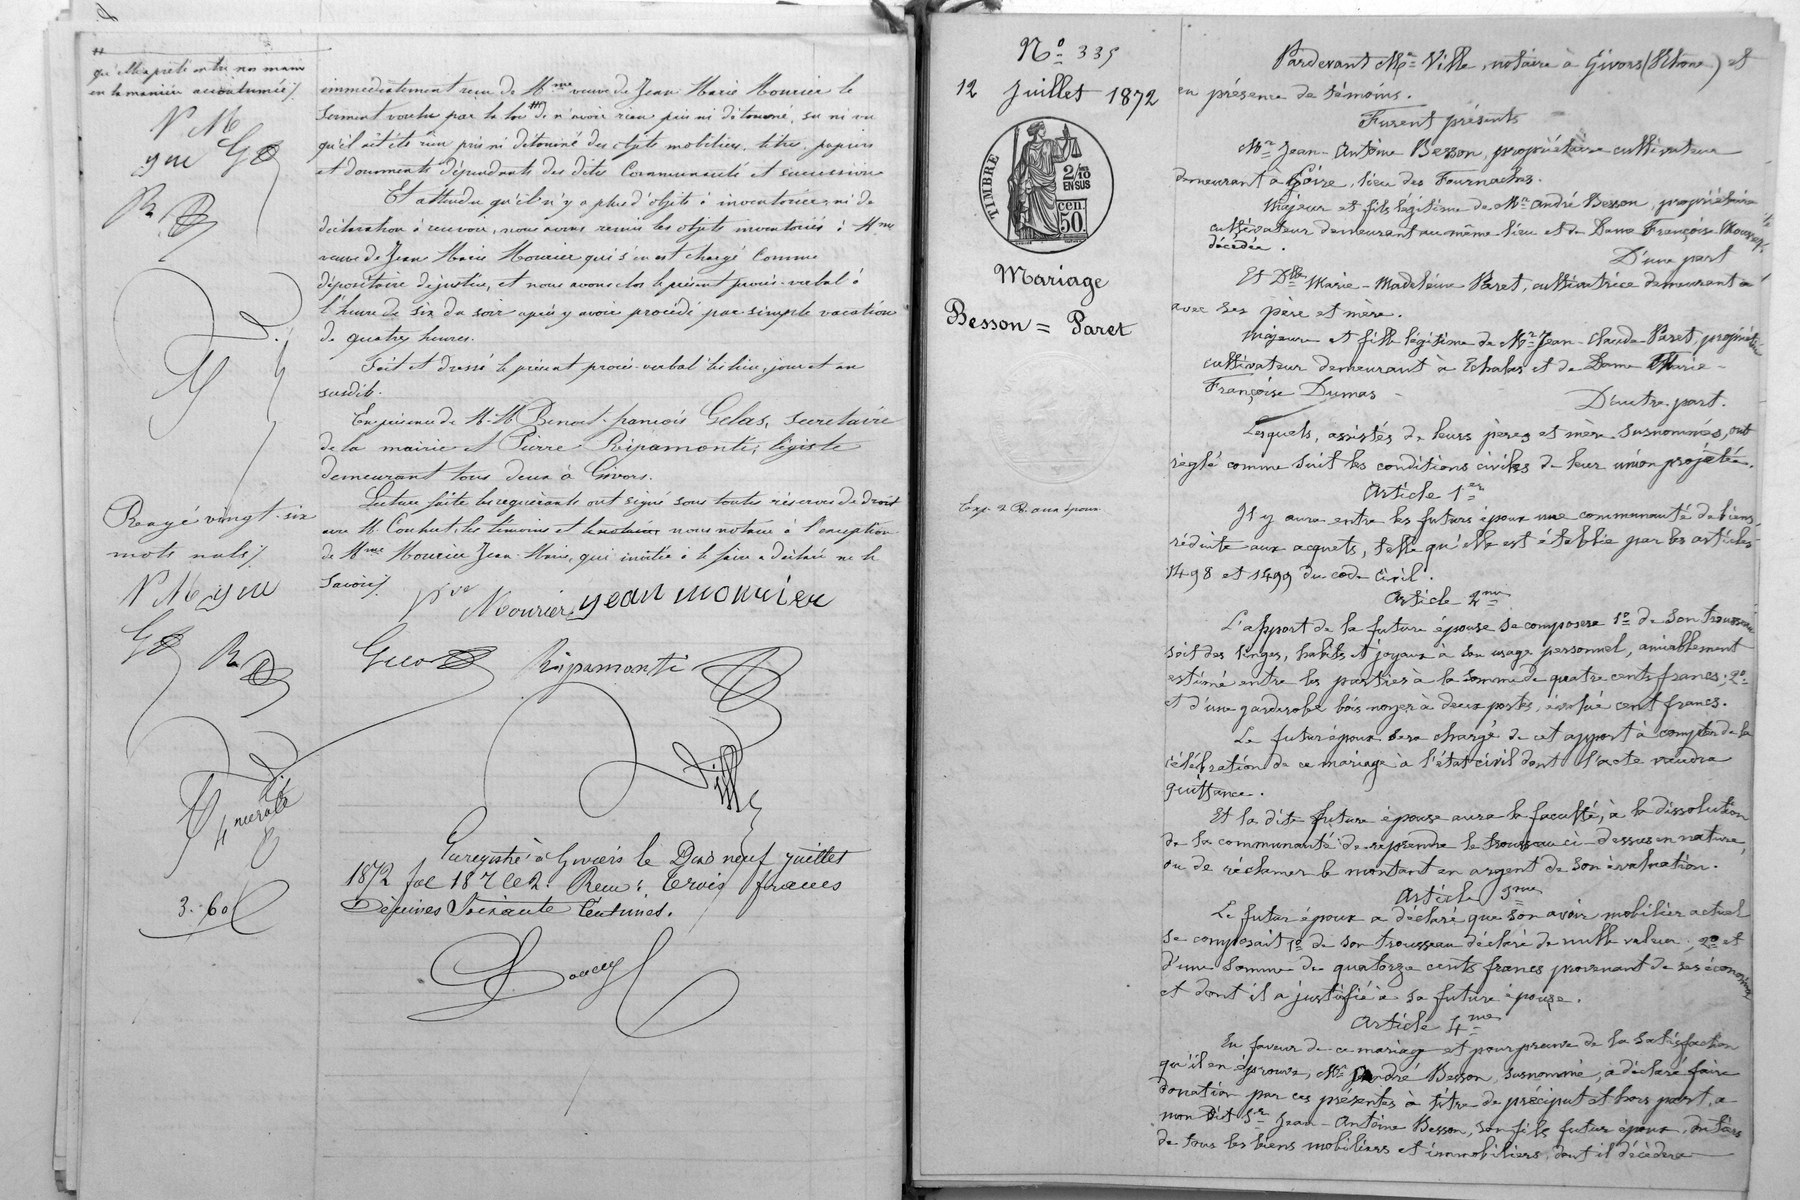 qu'elle a prêté entre nos mains
en la manière accoutumée /.
V M
GD
R
immédiatement reçu de Mme veuve de Jean Marie Mourier le
serment voulu par la loi de n'avoir rien pris ni détourné, su ni vu
qu'il ait été rien pris ni détourné des objets mobiliers, titres, papiers
et documents dépendants des dites Communauté et succession
Et attendu qu'il n'y a plus d'objets à inventorier, ni de
déclaration à recevoir, nous avons remis les objets inventoriés à Mme
veuve de Jean Marie Mourier qui s'en est chargé comme
dépositaire de justice, et nous avons clos le présent procès-verbal à
l'heure de six du soir après y avoir procédé par simple vacation
de quatre heures.
Fait et dressé le présent procès-verbal les lieu, jour et an
susdit.
En présence de M. M. Benoit-francois Gelas, secrétaire
de la mairie et Pierre Ripamonti, légiste
demeurant tous deux à Givors.
Lecture faite les requérants ont signé sous toutes réserves de droit
avec M. les témoins et nous notaire à l'exception
de Mme Mourier Jean-Marie, qui invitée à le faire a déclaré ne le
savoir /.
Rayé vingt-six
mots nuls /.
V M
Mourier jean mourier
GD R
Gelas Ripamonti
Ville
Enregistré à Givors le Dix neuf juillet
1872 fol 187 c 2. Reçu: trois francs
Décimes Soixante Centimes.
3.60
N° 335
12 Juillet 1872
TIMBRE
2/10
EN SUS
cen.
50.
Mariage
Besson = Paret
Pardevant Me Ville, notaire à Givors (Rhône) et
en présence de témoins.
Furent présents
Mr Jean-Antoine Besson, propriétaire cultivateur
demeurant à lieu des Fournaches.
Majeur et fils légitime de Mr André Besson, propriétaire
cultivateur demeurant au même lieu et de Dame Françoise
décédée.
D'une part
Et Dlle Marie-Madeleine Paret, cultivatrice demeurant
avec ses père et mère.
Majeure et fille légitime de Mr Jean-Claude Paret, propriétaire
cultivateur demeurant à Echalas et de Dame Marie-
Françoise Dumas
D'autre part.
Lesquels, assistés de leurs pères et mère susnommés, ont
réglé comme suit les conditions civiles de leur union projetée.
Article 1er
Il y aura entre les futurs époux une communauté de biens
réduite aux acquets, telle qu'elle est établie par les articles
1498 et 1499 du code civil.
Article 2me
L'apport de la future épouse se compose 1° de son trousseau
soit des linges, habits et joyaux à son usage personnel, amiablement
estimé entre les parties à la somme de quatre cents francs; 2°
et d'une garderobe bois noyer à deux portes, évalué cent francs.
Le futur époux sera chargé de cet apport à compter de la
célébration de ce mariage à l'état civil dont l'acte vaudra
quittance.
Et la dite future épouse aura la faculté, à la dissolution
de la communauté de reprendre le trousseau ci-dessus en nature,
ou de réclamer le montant en argent de son évaluation.
Article 3me
Le futur époux a déclaré que son avoir mobilier actuel
se composait 1° de son trousseau déclaré de nulle valeur, 2° et
d'une somme de quatorze cents francs provenant de ses économies
et dont il a justifié à sa future épouse.
Article 4me
En faveur de ce mariage et pour preuve de la satisfaction
qu'il en éprouve, Mr André Besson, susnommé, a déclaré faire
donation par ces présentes à titre de préciput et hors part, a
mon dit Sr Jean-Antoine Besson, son fils futur époux, du tiers
de tous les biens mobiliers et immobiliers, dont il décèdera